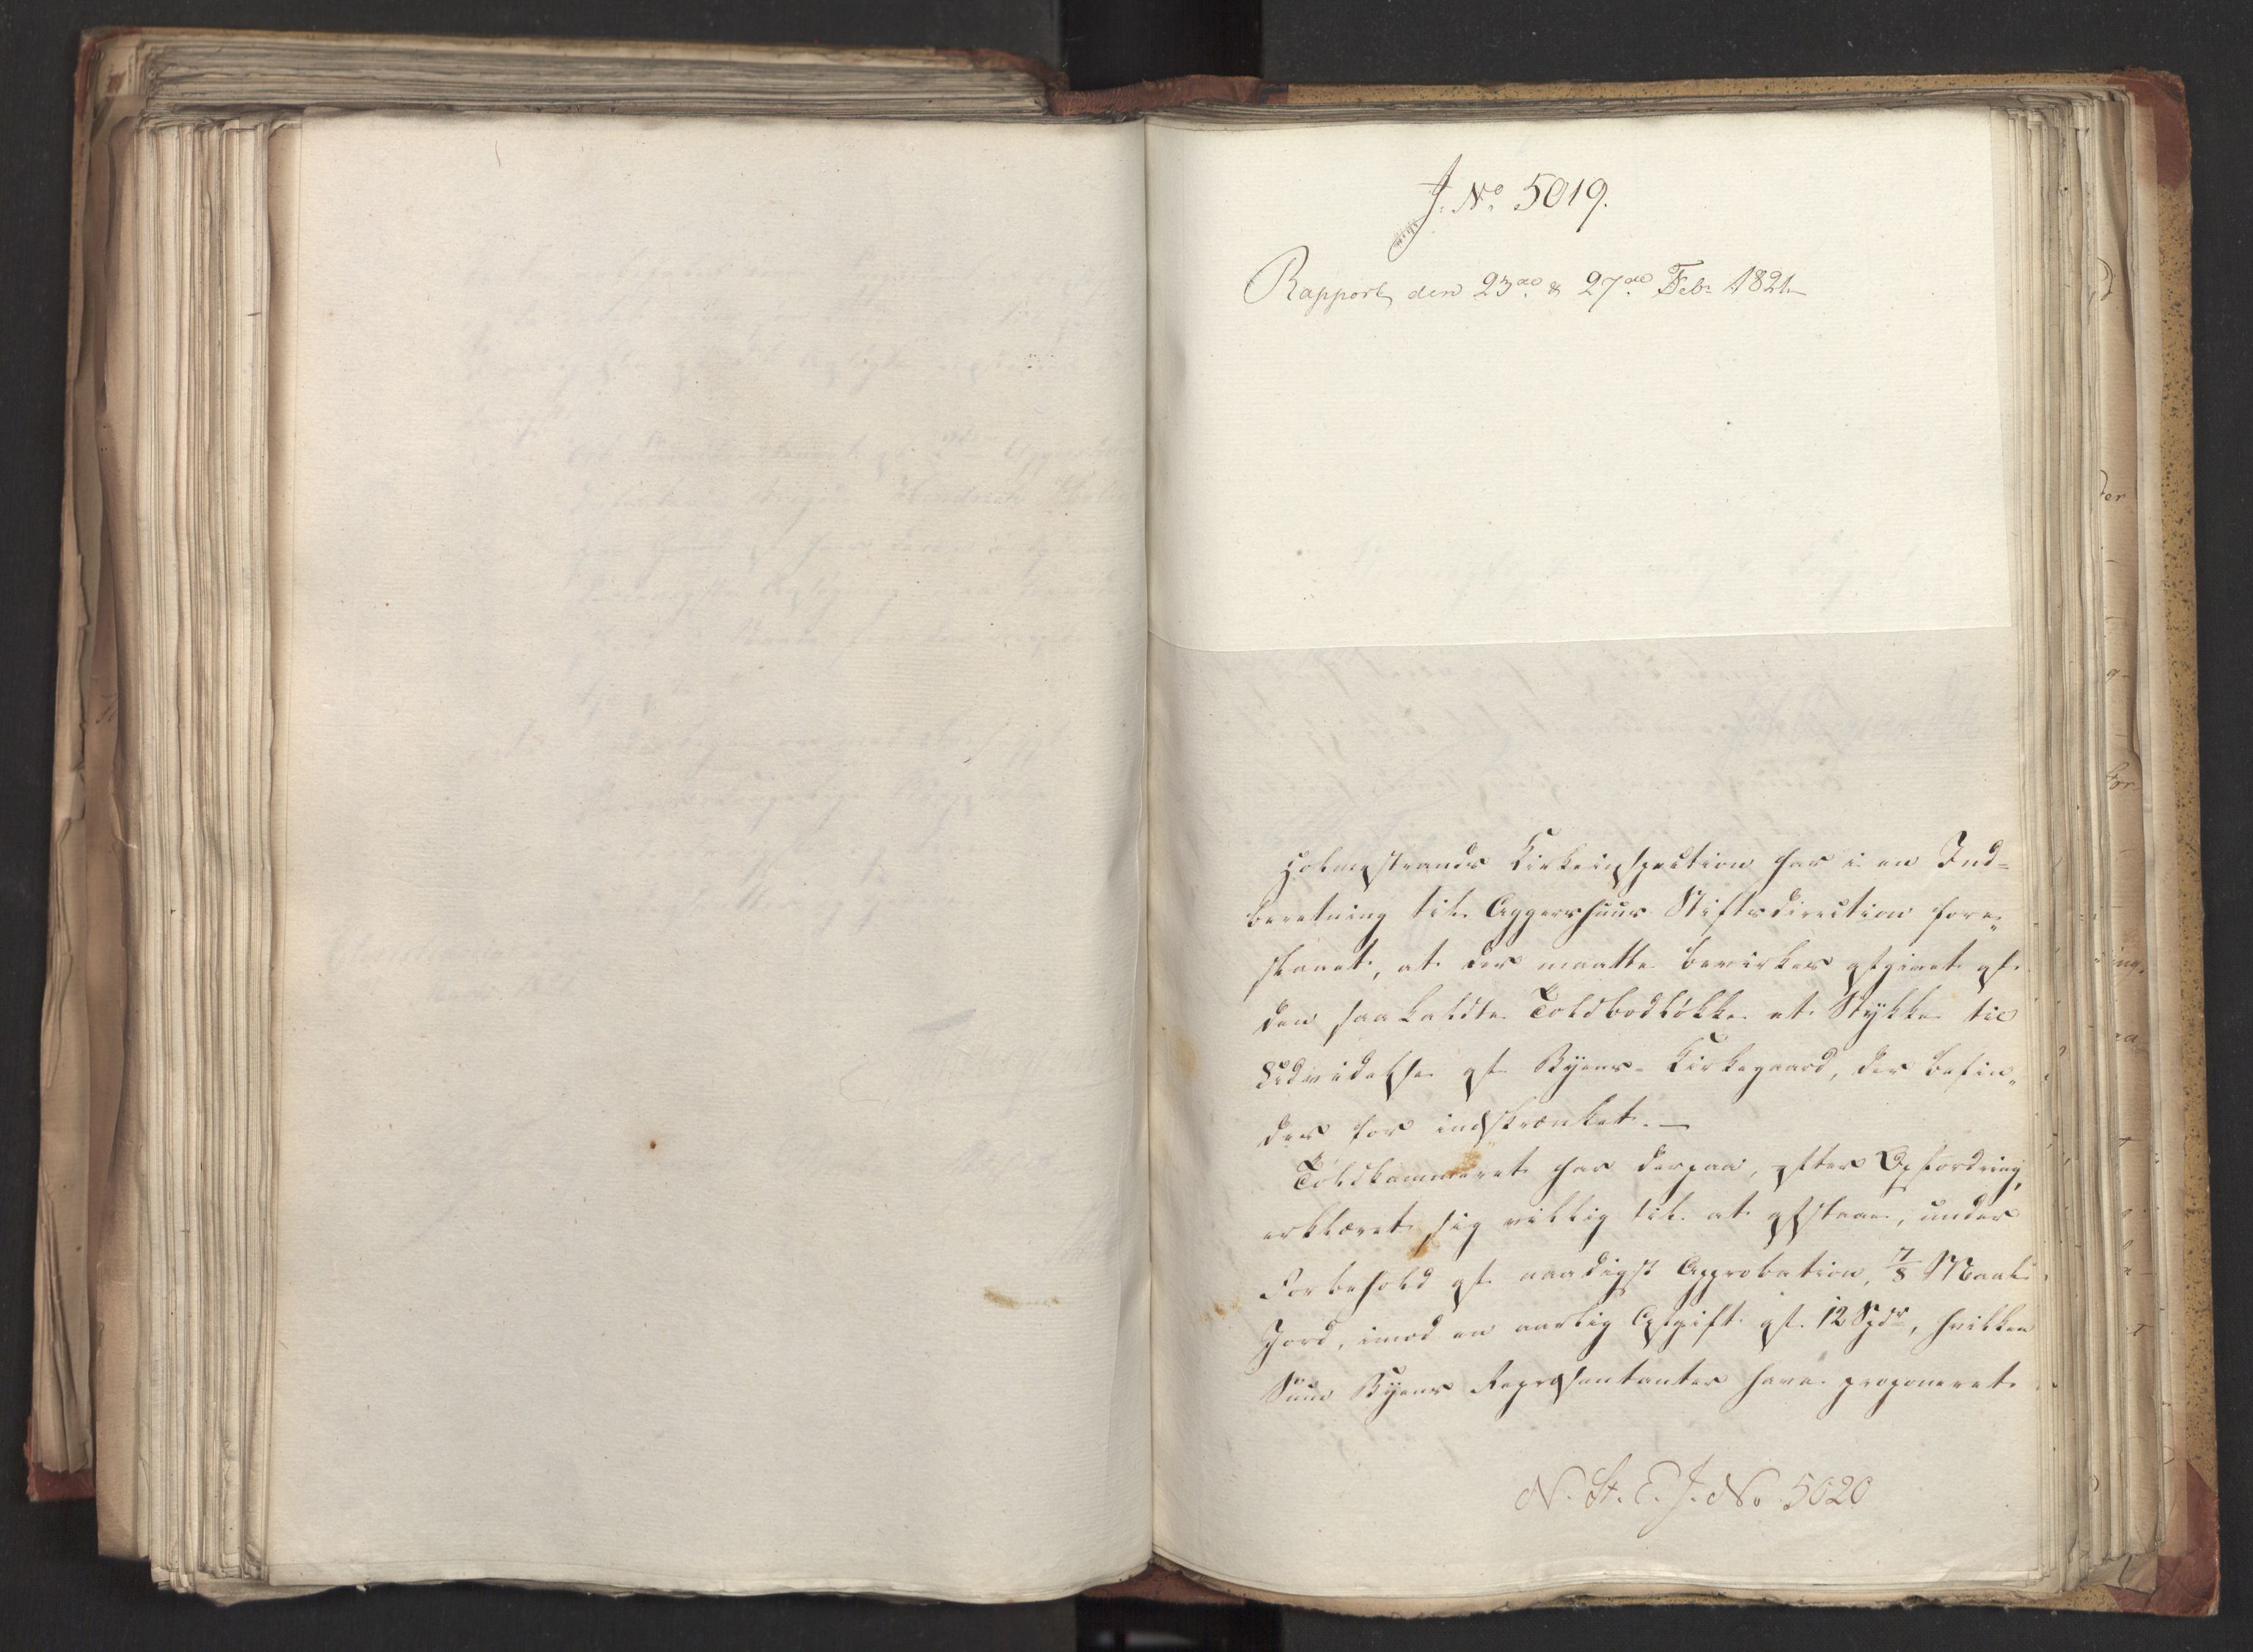 J. No 5019.
Rapport den 23de & 27de Febr 1821
Holmestrands Kirkeinspection har i en Ind=
beretning til Aggershuus Stiftsdirection fore„
slaaet, at der maatte bevirkes afgivet af
den saakaldte Toldbodløkke et Stykke til
Udvidelse af Byens Kirkegaard, der befin„
des for indskrænket. —
Toldkammeret har derpaa, efter Opfordring,
erklæret sig villig til at afstaae, under
Forbehold af naadigst Approbation, 7/8 Maal
Jord, imod en aarlig Afgift af 12 Spdr, hvilken
Sum Byens Repræsentanter have proponeret
N. St. E. J. No 5020